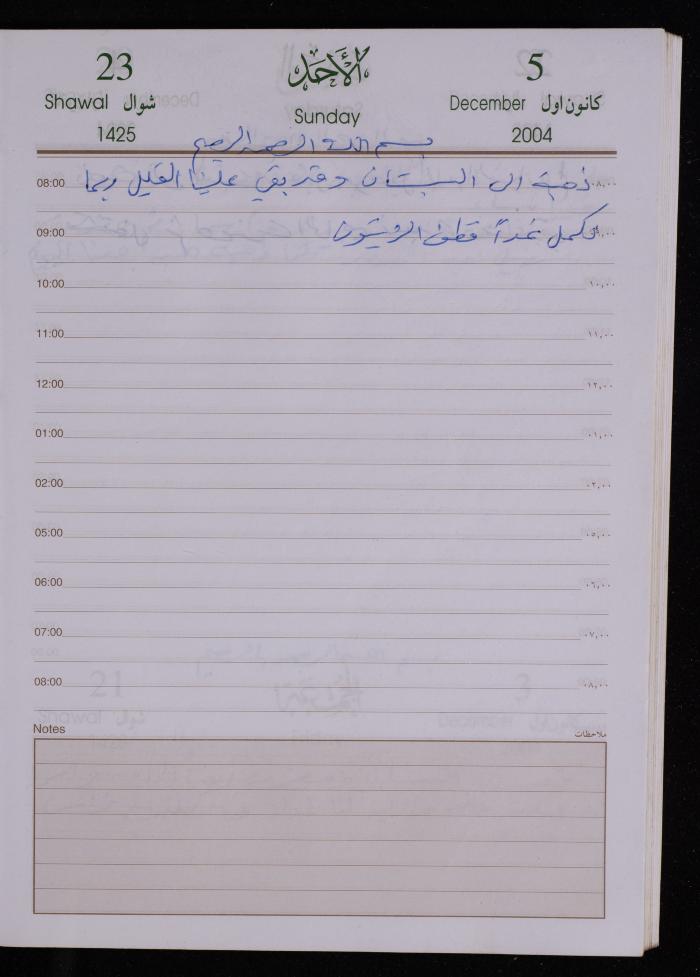 23 الأحد 5
Shawal شوال Sunday December كانون اول
1425 2004
بسم الله الرحمن الرحيم
08:00 ذهبة الى البستان وقد بقي علينا القليل ربما ٠٨,٠٠
09:00 نكمل غداً قطف الزيتون ٠٩,٠٠
10:00 ١٠,٠٠
11:00 ١١,٠٠
12:00 ١٢,٠٠
01:00 ٠١,٠٠
02:00 ٠٢,٠٠
05:00 ٠٥,٠٠
06:00 ٠٦,٠٠
07:00 ٠٧,٠٠
08:00 ٠٨,٠٠
Notes ملاحظات